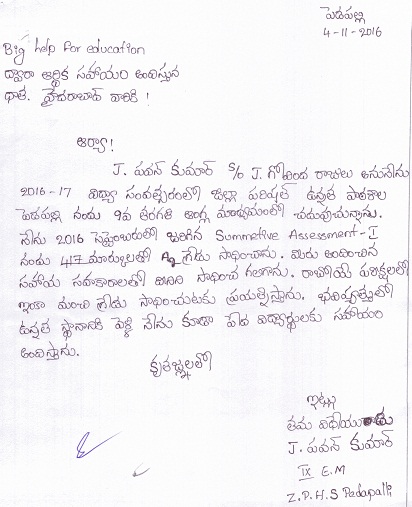 పెదపల్లి
4-11-2016
Big help for education
ద్వారా ఆర్థిక సహాయం అందిస్తున
దాత. హైదరాబాద్ వారికి !
ఆర్యా!
J. పవన్ కుమార్ S/o J. గోవింద రాజులు అనునేను
2016-17 విద్యా సంవత్సరంలో జిల్లా పరిషత్ ఉన్నత పాఠశాల
పెదపల్లి నందు 9వ తరగతి ఆంగ్ల మాధ్యమంలో చదువుచున్నాను.
నేను 2016 సెప్టెంబరులో జరిగిన Summetive Assessment-I
నందు 417 మార్కులతో A2 గ్రేడు సాధించాను. మీరు అందించిన
సహాయ సహకారాలతో సాధించ గలిగాను. రాబోయే పరీక్షలలో
ఇంకా మంచి గ్రేడు సాధించుటకు ప్రయత్నిస్తాను. భవిష్యత్తులో
ఉన్నత స్థానానికి వెళ్లి నేను కూడా పేద విద్యార్థులకు సహాయం
అందిస్తాను.
కృతజ్ఞలతో
ఇట్లు
తమ విధేయు
J. పవన్ కుమార్
IX E.M
Z.P.H.S Pedapalli